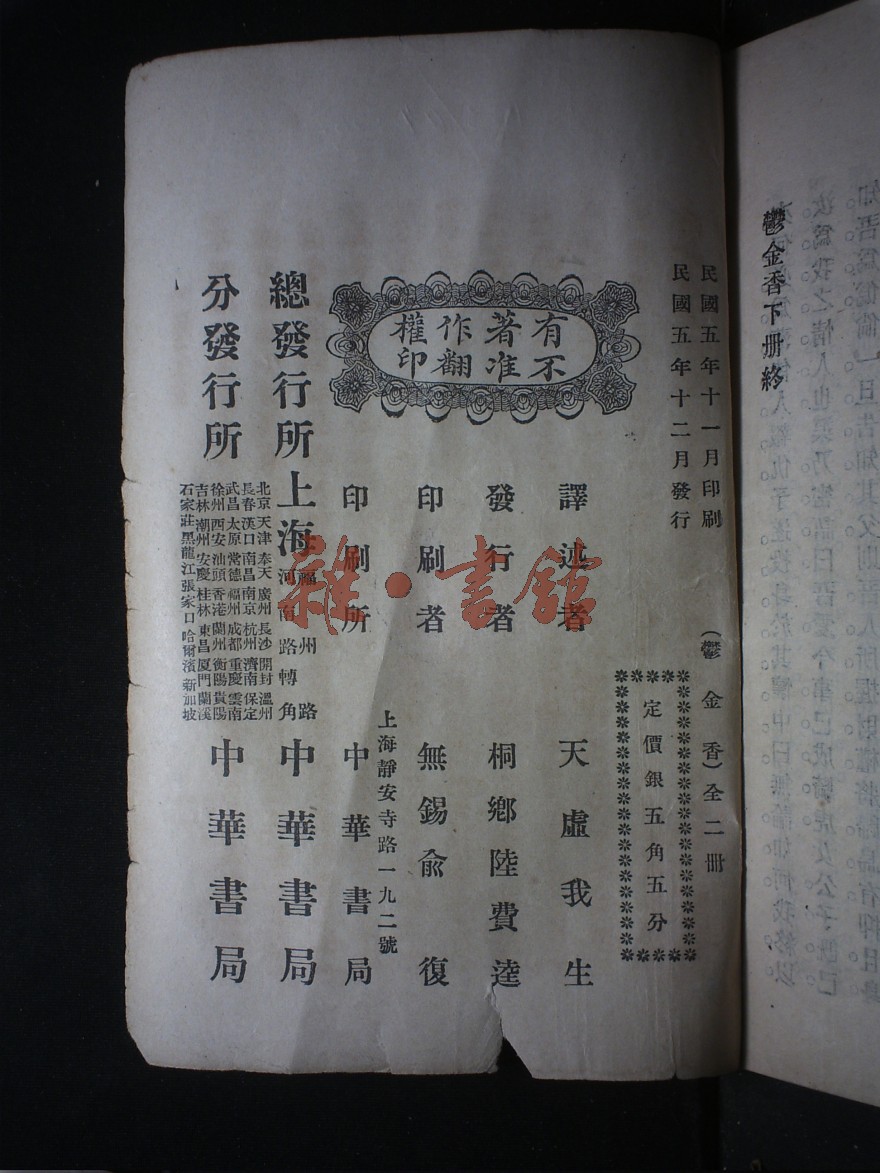 鬱金香下册終
民國五年十一月印刷
民國五年十二月發行
(鬱金香)全二冊
定價銀五角五分
有著作權
不准翻印
譯述者 天虛我生
發行者 桐鄉陸費逵
印刷者 無錫俞復
上海靜安寺路一九二號
印刷所 中華書局
總發行所 上海 福州路河南路轉角 中華書局
分發行所
北京 天津 奉天 廣州 長沙 開封 溫州
長春 漢口 南昌 南京 杭州 濟南 保定
武昌 太原 常德 福州 成都 重慶 雲南
徐州 西安 汕頭 香港 蘭州 衡陽 貴陽
吉林 潮州 安慶 桂林 東昌 厦門 蘭溪
石家莊 黑龍江 張家口 哈爾濱 新加坡
中華書局
雜·書館